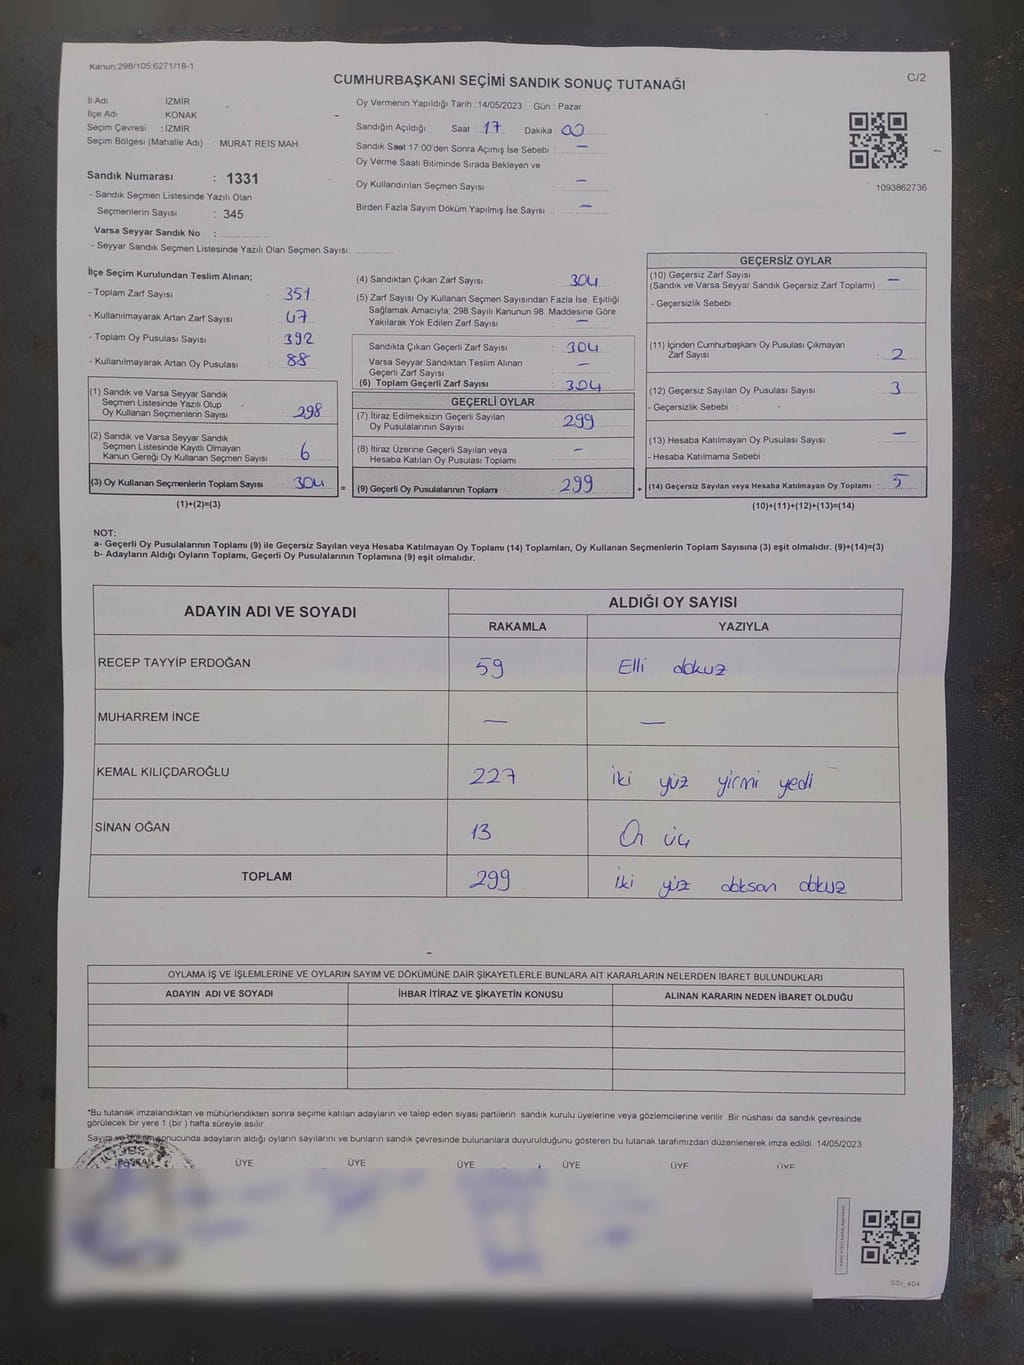 Kanun:298/105:6271/18-1
CUMHURBAŞKANI SEÇİMİ SANDIK SONUÇ TUTANAĞI
C/2
İl Adı İZMİR
İlçe Adı : KONAK
Seçim Çevresi : İZMİR
Seçim Bölgesi (Mahalle Adı) : MURAT REİS MAH.
Sandık Numarası : 1331
- Sandık Seçmen Listesinde Yazılı Olan
Seçmenlerin Sayısı : 345
Varsa Seyyar Sandık No :
- Seyyar Sandık Seçmen Listesinde Yazılı Olan Seçmen Sayısı:
Oy Vermenin Yapıldığı Tarih :14/05/2023 Gün : Pazar
Sandığın Açıldığı Saat : 17 Dakika : 00
Sandık Saat 17:00'den Sonra Açımış İse Sebebi : —
Oy Verme Saati Bitiminde Sırada Bekleyen ve
Oy Kullandırılan Seçmen Sayısı : —
Birden Fazla Sayım Döküm Yapılmış İse Sayısı : —
1093862736
İlçe Seçim Kurulundan Teslim Alınan;
- Toplam Zarf Sayısı : 351
- Kullanılmayarak Artan Zarf Sayısı : 47
- Toplam Oy Pusulası Sayısı : 392
- Kullanılmayarak Artan Oy Pusulası : 88
(1) Sandık ve Varsa Seyyar Sandık
Seçmen Listesinde Yazılı Olup
Oy Kullanan Seçmenlerin Sayısı : 298
(2) Sandık ve Varsa Seyyar Sandık
Seçmen Listesinde Kayıtlı Olmayan
Kanun Gereği Oy Kullanan Seçmen Sayısı : 6
(3) Oy Kullanan Seçmenlerin Toplam Sayısı : 304 =
(1)+(2)=(3)
(4) Sandıktan Çıkan Zarf Sayısı : 304
(5) Zarf Sayısı Oy Kullanan Seçmen Sayısından Fazla İse, Eşitliği
Sağlamak Amacıyla; 298 Sayılı Kanunun 98. Maddesine Göre
Yakılarak Yok Edilen Zarf Sayısı : —
Sandıkta Çıkan Geçerli Zarf Sayısı : 304
Varsa Seyyar Sandıktan Teslim Alınan
Geçerli Zarf Sayısı : —
(6) Toplam Geçerli Zarf Sayısı : 304
GEÇERLİ OYLAR
(7) İtiraz Edilmeksizin Geçerli Sayılan
Oy Pusulalarının Sayısı : 299
(8) İtiraz Üzerine Geçerli Sayılan veya
Hesaba Katılan Oy Pusulası Toplamı : —
(9) Geçerli Oy Pusulalarının Toplamı : 299 +
GEÇERSİZ OYLAR
(10) Geçersiz Zarf Sayısı
(Sandık ve Varsa Seyyar Sandık Geçersiz Zarf Toplamı) : —
- Geçersizlik Sebebi :
(11) İçinden Cumhurbaşkanı Oy Pusulası Çıkmayan
Zarf Sayısı : 2
(12) Geçersiz Sayılan Oy Pusulası Sayısı : 3
- Geçersizlik Sebebi :
(13) Hesaba Katılmayan Oy Pusulası Sayısı : —
- Hesaba Katılmama Sebebi :
(14) Geçersiz Sayılan veya Hesaba Katılmayan Oy Toplamı : 5
(10)+(11)+(12)+(13)=(14)
NOT:
a- Geçerli Oy Pusulalarının Toplamı (9) ile Geçersiz Sayılan veya Hesaba Katılmayan Oy Toplamı (14) Toplamları, Oy Kullanan Seçmenlerin Toplam Sayısına (3) eşit olmalıdır. (9)+(14)=(3)
b- Adayların Aldığı Oyların Toplamı, Geçerli Oy Pusulalarının Toplamına (9) eşit olmalıdır.
ADAYIN ADI VE SOYADI ALDIĞI OY SAYISI
RAKAMLA YAZIYLA
RECEP TAYYİP ERDOĞAN 59 Elli dokuz
MUHARREM İNCE — —
KEMAL KILIÇDAROĞLU 227 iki yüz yirmi yedi
SİNAN OĞAN 13 On üç
TOPLAM 299 iki yüz doksan dokuz
OYLAMA İŞ VE İŞLEMLERİNE VE OYLARIN SAYIM VE DÖKÜMÜNE DAİR ŞİKAYETLERLE BUNLARA AİT KARARLARIN NELERDEN İBARET BULUNDUKLARI
ADAYIN ADI VE SOYADI İHBAR İTİRAZ VE ŞİKAYETİN KONUSU ALINAN KARARIN NEDEN İBARET OLDUĞU
*Bu tutanak imzalandıktan ve mühürlendikten sonra seçime katılan adayların ve talep eden siyasi partilerin sandık kurulu üyelerine veya gözlemcilerine verilir. Bir nüshası da sandık çevresinde
görülecek bir yere 1 (bir ) hafta süreyle asılır.
Sayım ve döküm sonucunda adayların aldığı oyların sayılarını ve bunların sandık çevresinde bulunanlara duyurulduğunu gösteren bu tutanak tarafımızdan düzenlenerek imza edildi. 14/05/2023
BAŞKAN ÜYE ÜYE ÜYE ÜYE ÜYE ÜYE
SSI_404